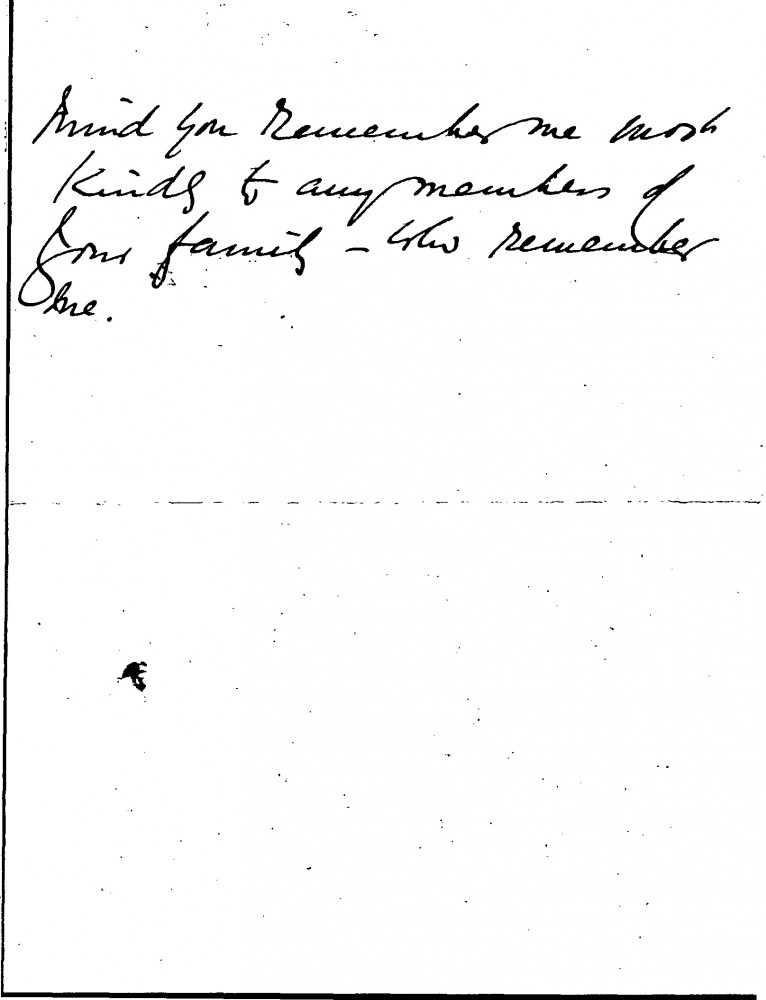 Mind you remember me most
kindly to any members of
your family - who remember
me.